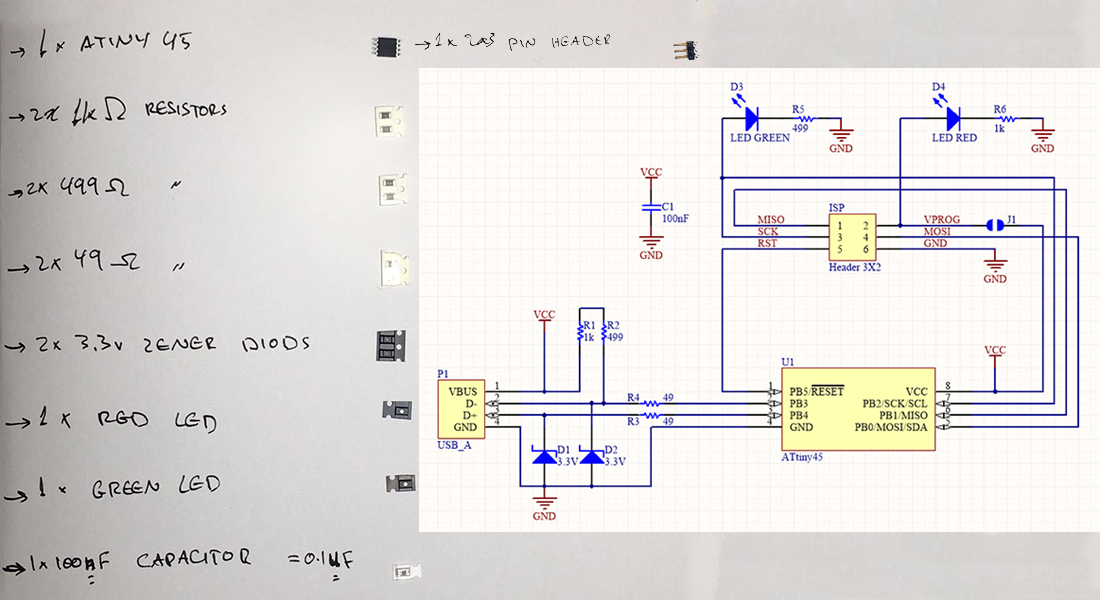 → 1 x ATINY 45
→ 1x 2x3 PIN HEADER
→ 2x 1k Ω RESISTORS
→ 2x 499 Ω "
→ 2x 49 Ω "
→ 2x 3.3v ZENER DIODS
→ 1 x RED LED
→ 1 x GREEN LED
→ 1x 100nF CAPACITOR = 0.1uF
D3
LED GREEN
R5
499
GND
D4
LED RED
R6
1k
GND
VCC
C1
100nF
GND
ISP
MISO 1 2 VPROG J1
SCK 3 4 MOSI
RST 5 6 GND
Header 3X2
GND
VCC
R1
1k
R2
499
P1
VBUS 1
D- 2
D+ 3
GND 4
USB_A
R4 49
R3 49
D1
3.3V
D2
3.3V
GND
U1
VCC
1 PB5/RESET VCC 8
2 PB3 PB2/SCK/SCL 7
3 PB4 PB1/MISO 6
4 GND PB0/MOSI/SDA 5
ATtiny45